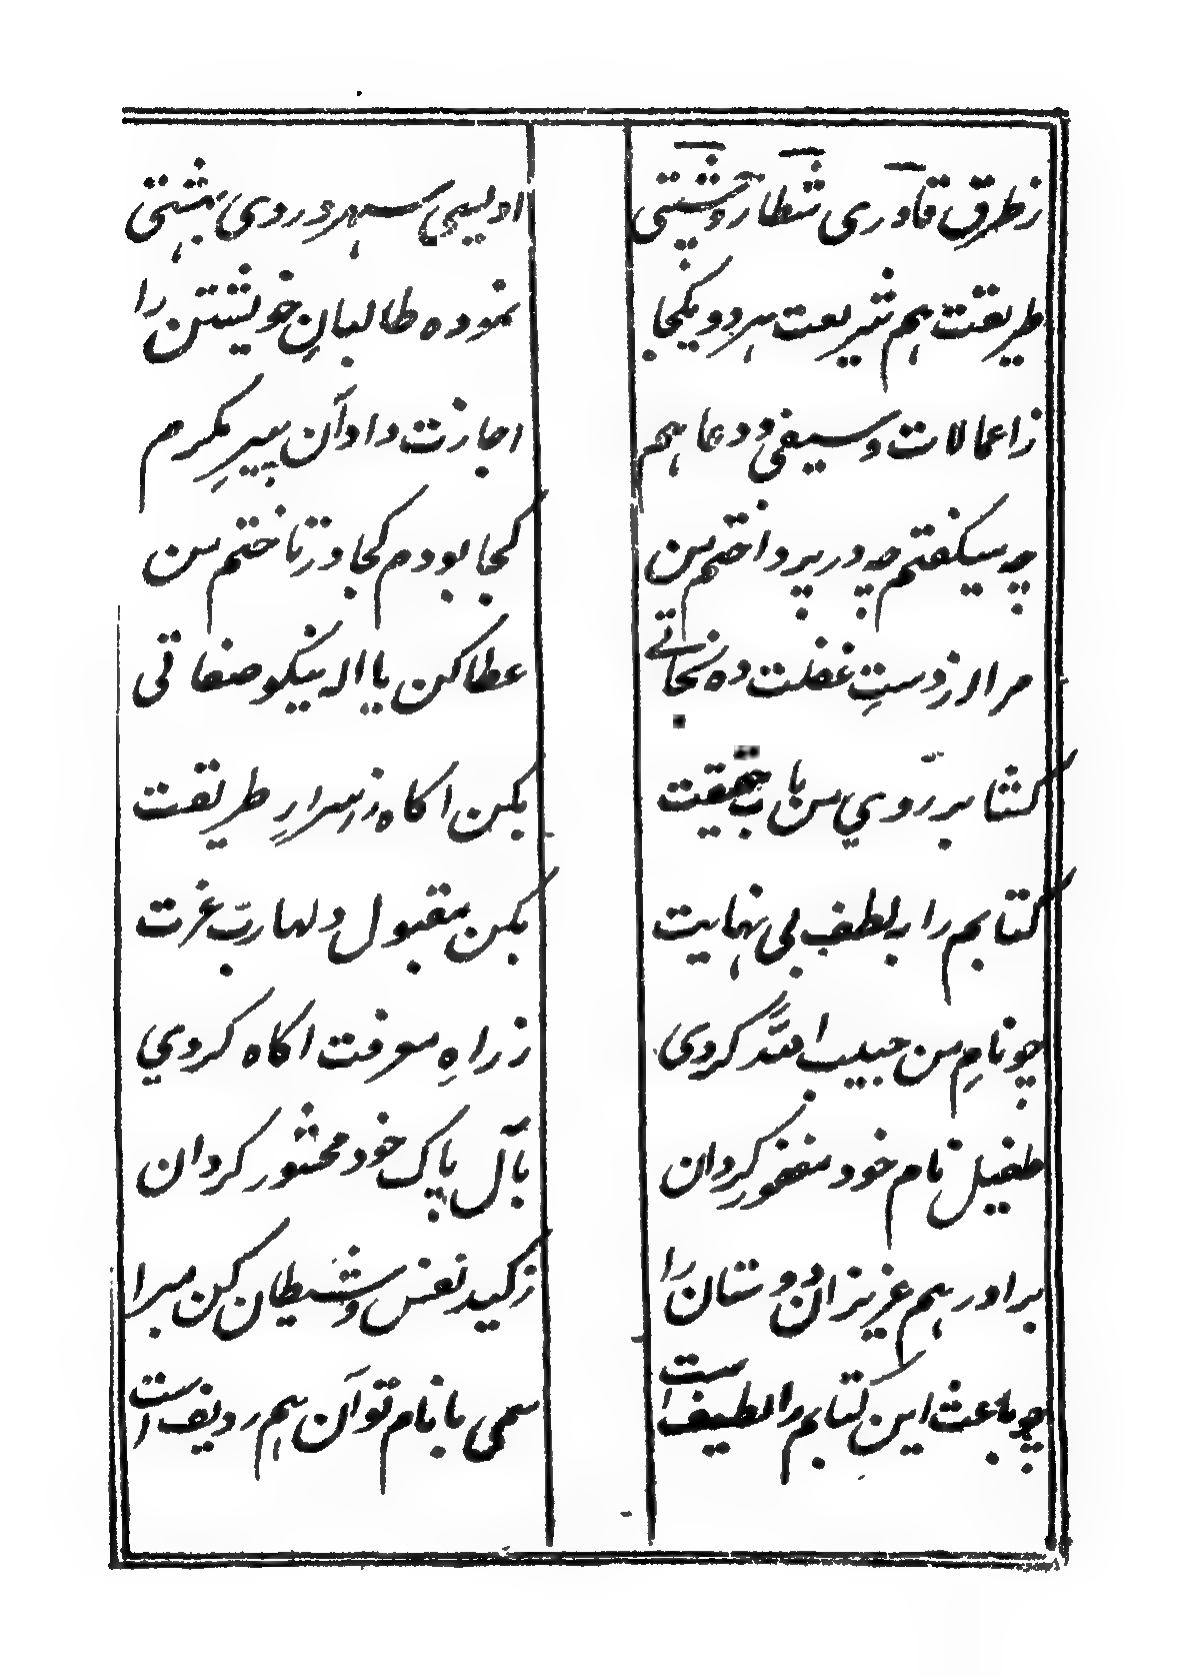 زطرق قادری شطار وچشتی
اویسی سهروردی بهشتی
طریقت هم شریعت هردو یکجا
نموده طالبانِ خویشتن را
زاعمالات وسیفی و دعا هم
اجازت داد آن پیرِ مکرم
چه میگفتم چه در پرداختم من
کجا بودم کجا درتاختم من
مرا از دستِ غفلت ده نجاتے
عطا کن یا اله نیکو صفاتی
کشا بر روي من بابِ حقیقت
بکن اکاه ز اسرارِ طریقت
کتابم را به لطفِ بی نهایت
بکن مقبول دلها ربّ عزت
چو نامِ من حبیب الله کردی
ز راهِ معرفت اکاه کردي
طفیل نام خود مغفور کردان
بآل پاک خود محشور کردان
برادر هم عزیزان و دوستان را
زکید نفس وشیطان کن مبرا
چو باعث این کتابم را لطیف است
سمی با نام تو آن هم ردیف است